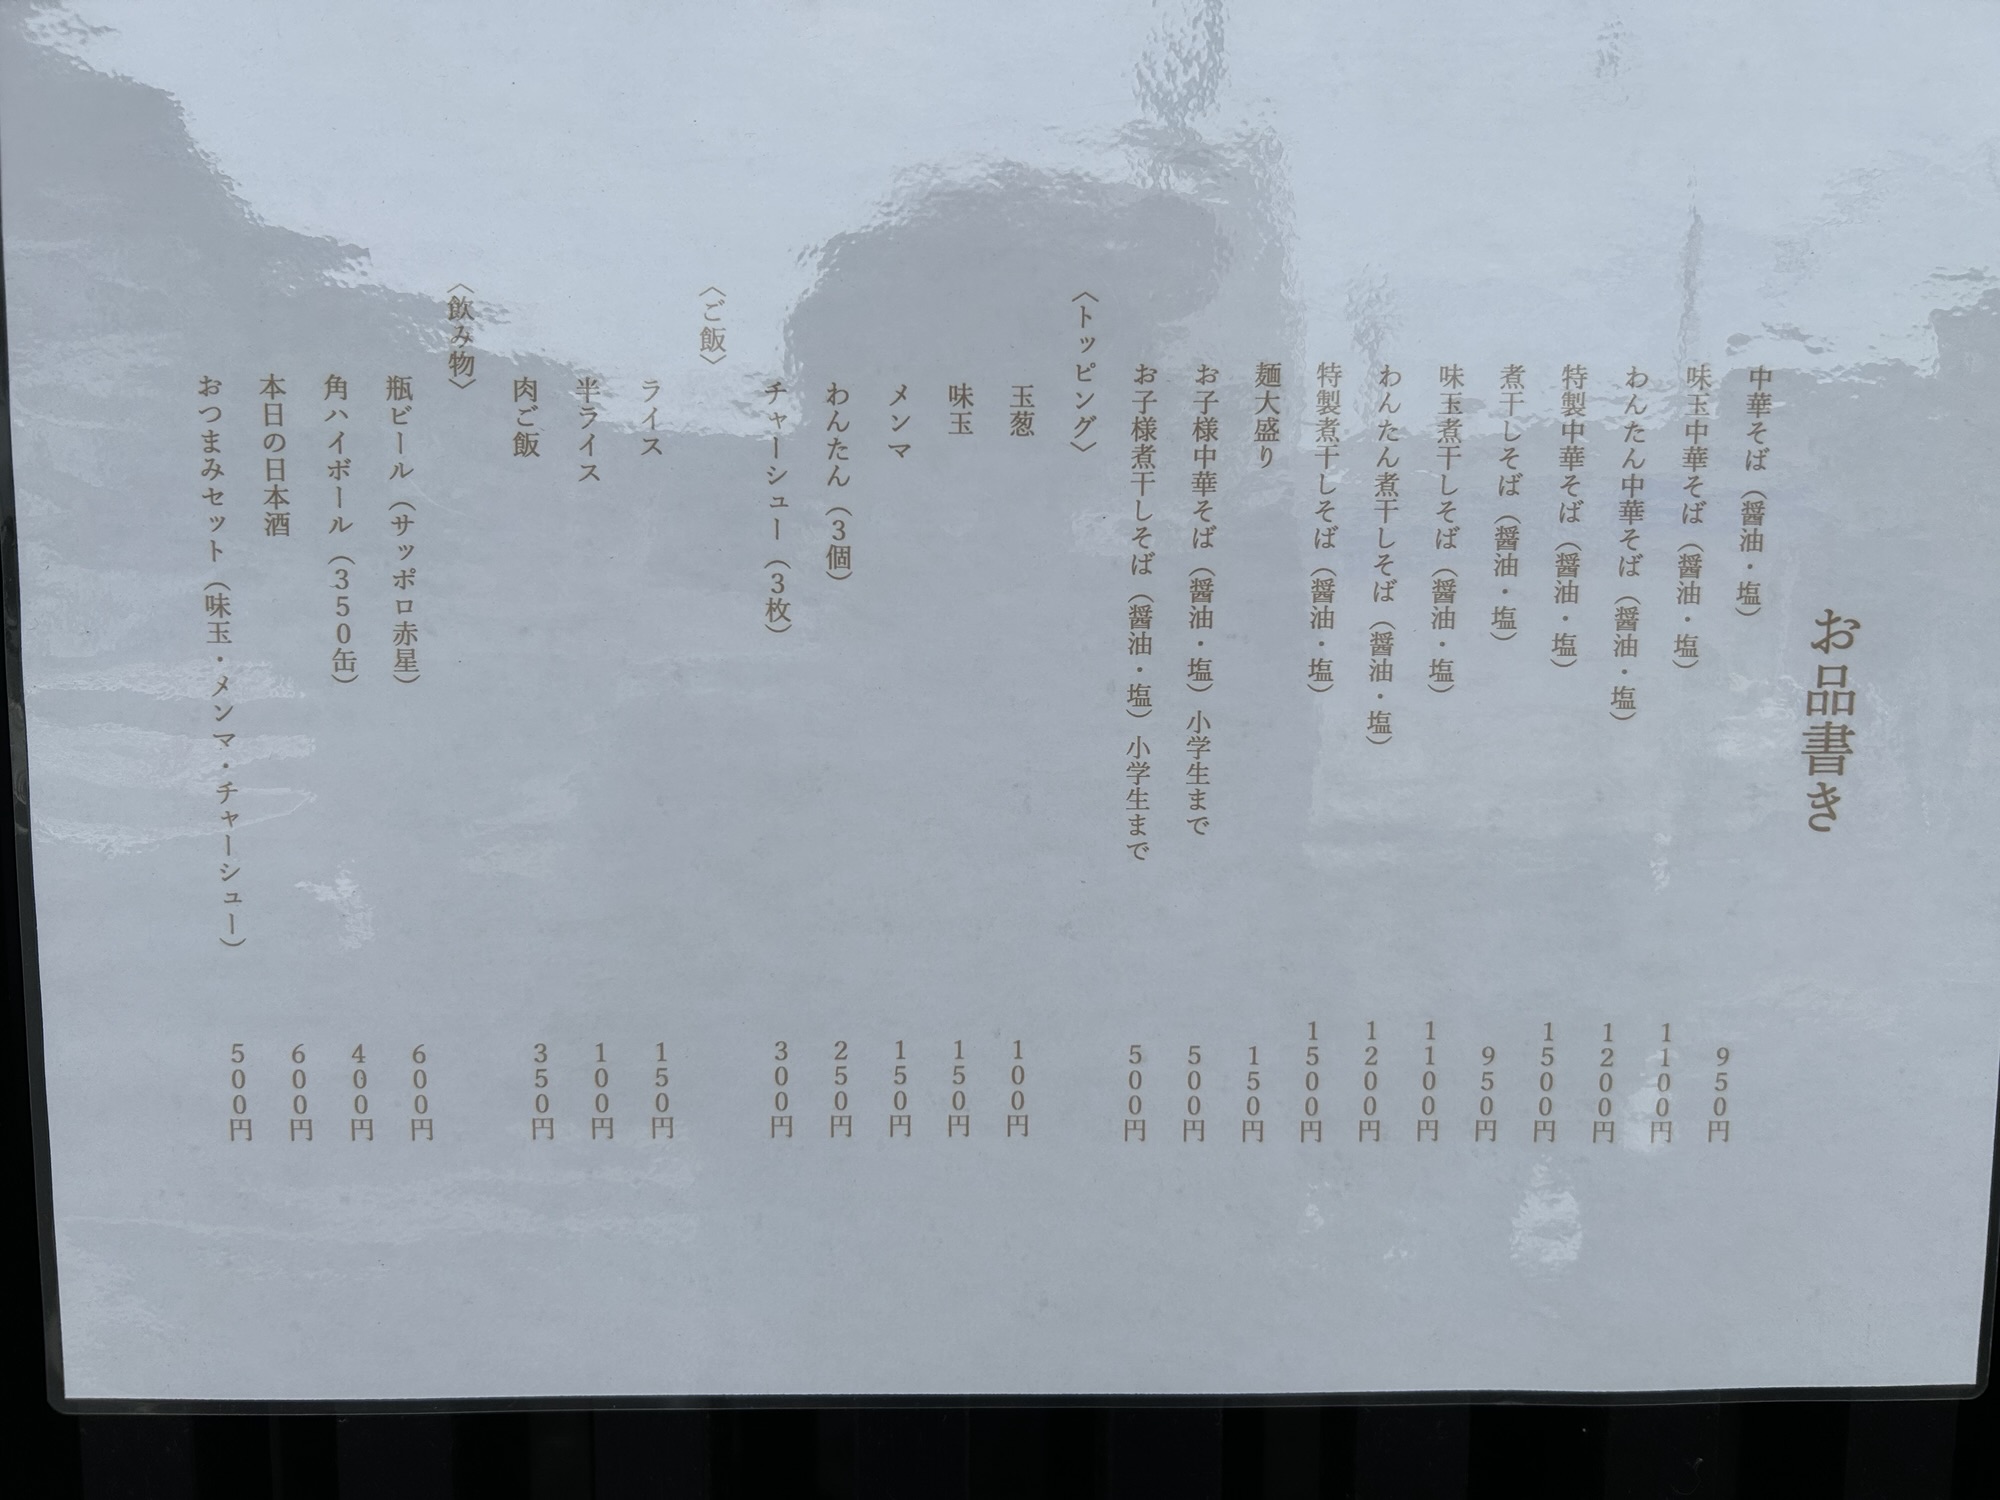 お品書き
中華そば（醤油・塩） 950円
味玉中華そば（醤油・塩） 1100円
わんたん中華そば（醤油・塩） 1200円
特製中華そば（醤油・塩） 1500円
煮干しそば（醤油・塩） 950円
味玉煮干しそば（醤油・塩） 1100円
わんたん煮干しそば（醤油・塩） 1200円
特製煮干しそば（醤油・塩） 1500円
麺大盛り 150円
お子様中華そば（醤油・塩）小学生まで 500円
お子様煮干しそば（醤油・塩）小学生まで 500円
〈トッピング〉
玉葱 100円
味玉 150円
メンマ 150円
わんたん（3個） 250円
チャーシュー（3枚） 300円
〈ご飯〉
ライス 150円
半ライス 100円
肉ご飯 350円
〈飲み物〉
瓶ビール（サッポロ赤星） 600円
角ハイボール（350缶） 400円
本日の日本酒 600円
おつまみセット（味玉・メンマ・チャーシュー） 500円